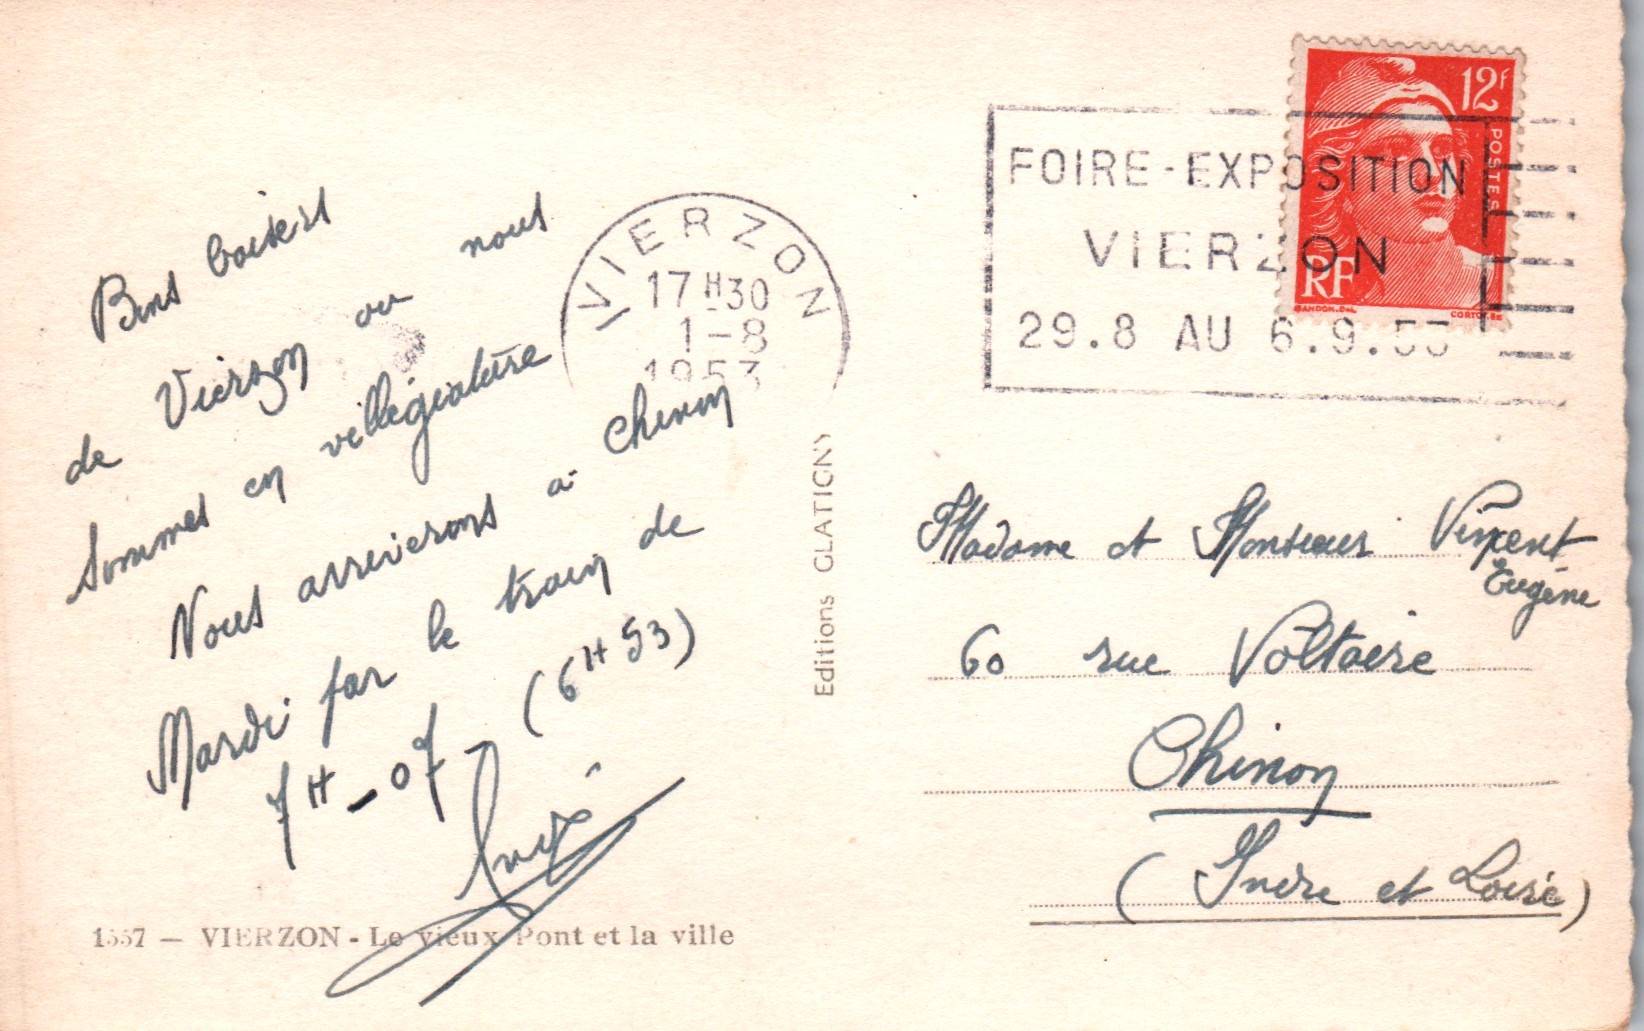 Bons baisers
de Vierzon ou nous
sommes en villégiature
Nous arriverons a Chinon
Mardi par le train de
7H-07 (6H53)
1557 — VIERZON - Le vieux Pont et la ville
VIERZON
17H30
1-8
1953
Editions GLATIGNY
FOIRE-EXPOSITION
VIERZON
29.8 AU 6.9.53
12f
POSTES
RF
GANDON.DEL
Madame et Monsieur Vincent
Eugène
60 rue Voltaire
Chinon
(Indre et Loire)